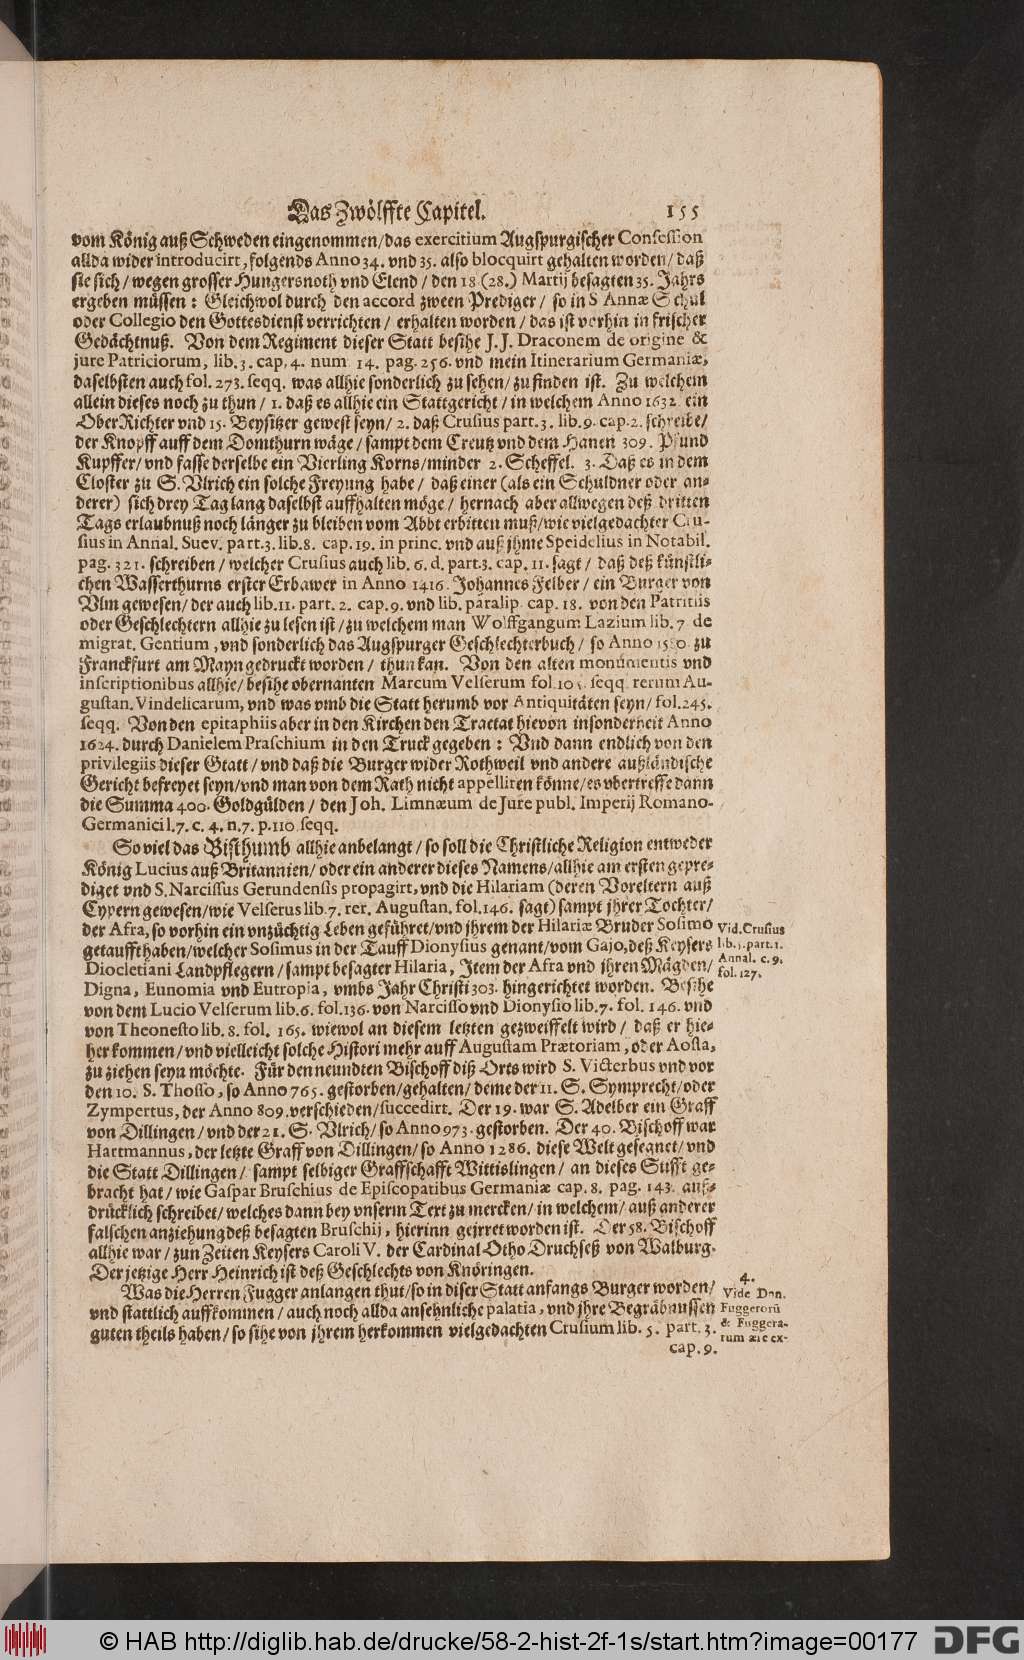 Das Zwölffte Capitel. 155
vom König auß Schweden eingenommen/das exercitium Augspurgischer Confession
allda wider introducirt, folgends Anno 34. vnd 35. also blocquirt gehalten worden/ daß
sie sich/ wegen grosser Hungersnoth vnd Elend/ den 18 (28.) Martij besagten 35. Jahrs
ergeben müssen: Gleichwol durch den accord zween Prediger/ so in S Annæ Schul
oder Collegio den Gottesdienst verrichten/ erhalten worden/ das ist vorhin in frischer
Gedächtnuß. Von dem Regiment dieser Statt besihe J. J. Draconem de origine &
jure Patriciorum, lib. 3. cap. 4. num 14. pag. 256. vnd mein Itinerarium Germaniæ,
daselbsten auch fol. 273. seqq. was allhie sonderlich zu sehen/ zu finden ist. Zu welchem
allein dieses noch zu thun/ 1. daß es allhie ein Stattgericht/ in welchem Anno 1632. ein
OberRichter vnd 15. Beysitzer gewest seyn/ 2. daß Crusius part. 3. lib. 9. cap. 2. schreibe/
der Knopff auff dem Domthurn wäge/ sampt dem Creutz vnd dem Hanen 309. Pfund
Kupffer/ vnd fasse derselbe ein Vierling Korns/minder 2. Scheffel. 3. Daß es in dem
Closter zu S. Vlrich ein solche Freyung habe/ daß einer (als ein Schuldner oder an-
derer) sich drey Tag lang daselbst auffhalten möge/ hernach aber allwegen deß dritten
Tags erlaubnuß noch länger zu bleiben vom Abbt erbitten muß/wie vielgedachter Cru-
sius in Annal. Suev. part. 3. lib. 8. cap. 19. in princ. vnd auß jhme Speidelius in Notabil.
pag. 321. schreiben/ welcher Crusius auch lib. 6. d. part. 3. cap. 11. sagt/ daß deß künstli-
chen Wasserthurns erster Erbawer in Anno 1416. Johannes Felber/ ein Burger von
Vlm gewesen/ der auch lib. 11. part. 2. cap. 9. vnd lib. paralip. cap. 18. von den Patritiis
oder Geschlechtern allhie zu lesen ist/ zu welchem man Wolffgangum Lazium lib. 7 de
migrat. Gentium, vnd sonderlich das Augspurger Geschlechterbuch/ so Anno 1580. zu
Franckfurt am Mayn gedruckt worden/ thun kan. Von den alten monumentis vnd
inscriptionibus allhie/ besihe obernanten Marcum Velserum fol. seqq. rerum Au-
gustan. Vindelicarum, vnd was vmb die Statt herumb vor Antiquitäten seyn/ fol. 245.
seqq. Von den epitaphiis aber in den Kirchen den Tractat hievon insonderheit Anno
1624. durch Danielem Praschium in den Truck gegeben: Vnd dann endlich von den
privilegiis dieser Gtatt/ vnd daß die Burger wider Rothweil vnd andere außländische
Gericht befreyet seyn/vnd man von dem Rath nicht appelliren könne/es vbertreffe dann
die Summa 400. Goldgülden/ den Joh. Limnæum de Jure publ. Imperij Romano-
Germanici l. 7. c. 4. n. 7. p. 110 seqq.
So viel das Bisthumb allhie anbelangt/ so soll die Christliche Religion entweder
König Lucius auß Britannien/ oder ein anderer dieses Namens/allhie am ersten gepre-
diget vnd S. Narcissus Gerundensis propagirt, vnd die Hilariam (deren Voreltern auß
Cypern gewesen/wie Velserus lib. 7. rer. Augustan. fol. 146. sagt) sampt jhrer Tochter/
der Afra, so vorhin ein vnzüchtig Leben geführet/vnd jhrem der Hilariæ Bruder Sosimo
getaufft haben/ welcher Sosimus in der Tauff Dionysius genant/ vom Gajo, deß Keysers
Diocletiani Landpflegern/ sampt besagter Hilaria, Item der Afra vnd jhren Mägden/
Digna, Eunomia vnd Eutropia, vmbs Jahr Christi 303. hingerichtet worden. Besihe
von dem Lucio Velserum lib. 6. fol. 136. von Narcisso vnd Dionysio lib. 7. fol. 146. vnd
von Theonesto lib. 8. fol. 165. wiewol an diesem letzten gezweiffelt wird/ daß er hie-
her kommen/ vnd vielleicht solche Histori mehr auff Augustam Prætoriam, oder Aosta,
zu ziehen seyn möchte. Für den neundten Bischoff diß Orts wird S. Victerbus vnd vor
den 10. S. Thosso, so Anno 765. gestorben/gehalten/ deme der 11. S. Symprecht/oder
Zympertus, der Anno 809. verschieden/succedirt. Der 19. war S. Adelber ein Graff
von Dillingen/ vnd der 21. S. Vlrich/ so Anno 973. gestorben. Der 40. Bischoff war
Hartmannus, der letzte Graff von Dillingen/ so Anno 1286. diese Welt gesegnet/ vnd
die Statt Dillingen/ sampt selbiger Graffschafft Wittislingen/ an dieses Stifft ge-
bracht hat/ wie Gaspar Bruschius de Episcopatibus Germaniæ cap. 8. pag. 143. auß-
drücklich schreibet/ welches dann bey vnserm Text zu mercken/ in welchem/ auß anderer
falschen anziehung deß besagten Bruschij, hierinn geirret worden ist. Der 58. Bischoff
allhie war/ zun Zeiten Keysers Caroli V. der Cardinal Otho Druchseß von Walburg.
Der jetzige Herr Heinrich ist deß Geschlechts von Knöringen.
Was die Herren Fugger anlangen thut/ so in diser Statt anfangs Burger worden/
vnd stattlich auffkommen/ auch noch allda ansehnliche palatia, vnd jhre Begräbnussen
guten theils haben/ so sihe von jhrem herkommen vielgedachten Crusium lib. 5. part. 3.
cap. 9.
Vid. Crusius
lib. 5. part. 1.
Annal. c. 9.
fol. 127.
4.
Vide Dn.
Fuggerorū
& Fuggera-
rum æic ex-
© HAB http://diglib.hab.de/drucke/58-2-hist-2f-1s/start.htm?image=00177
DFG